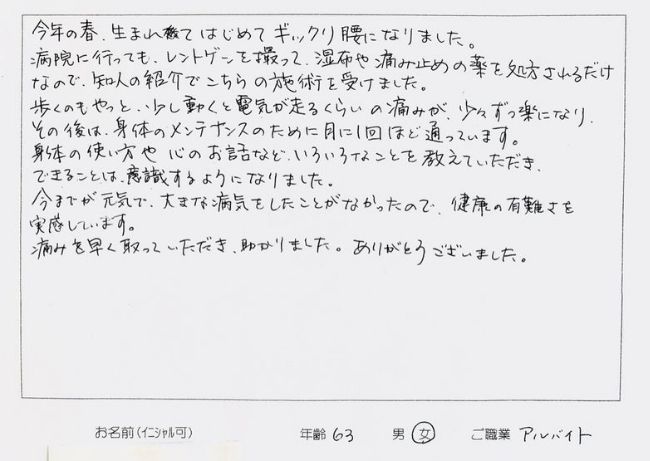 今年の春、生まれてはじめてギックリ腰になりました。
病院に行っても、レントゲンを撮って、湿布や痛み止めの薬を処方されるだけ
なので、知人の紹介でこちらの施術を受けました。
歩くのもやっと、少し動くと電気が走るくらいの痛みが、少々ずつ楽になり、
その後は、身体のメンテナンスのために月に1回ほど通っています。
身体の使い方や心のお話など、いろいろなことを教えていただき、
できることは、意識するようになりました。
今までが元気で、大きな病気をしたことがなかったので、健康の有難さを
実感しています。
痛みを早く取っていただき、助かりました。ありがとうございました。
お名前(イニシャル可) 年齢 63 男 女 ご職業 アルバイト